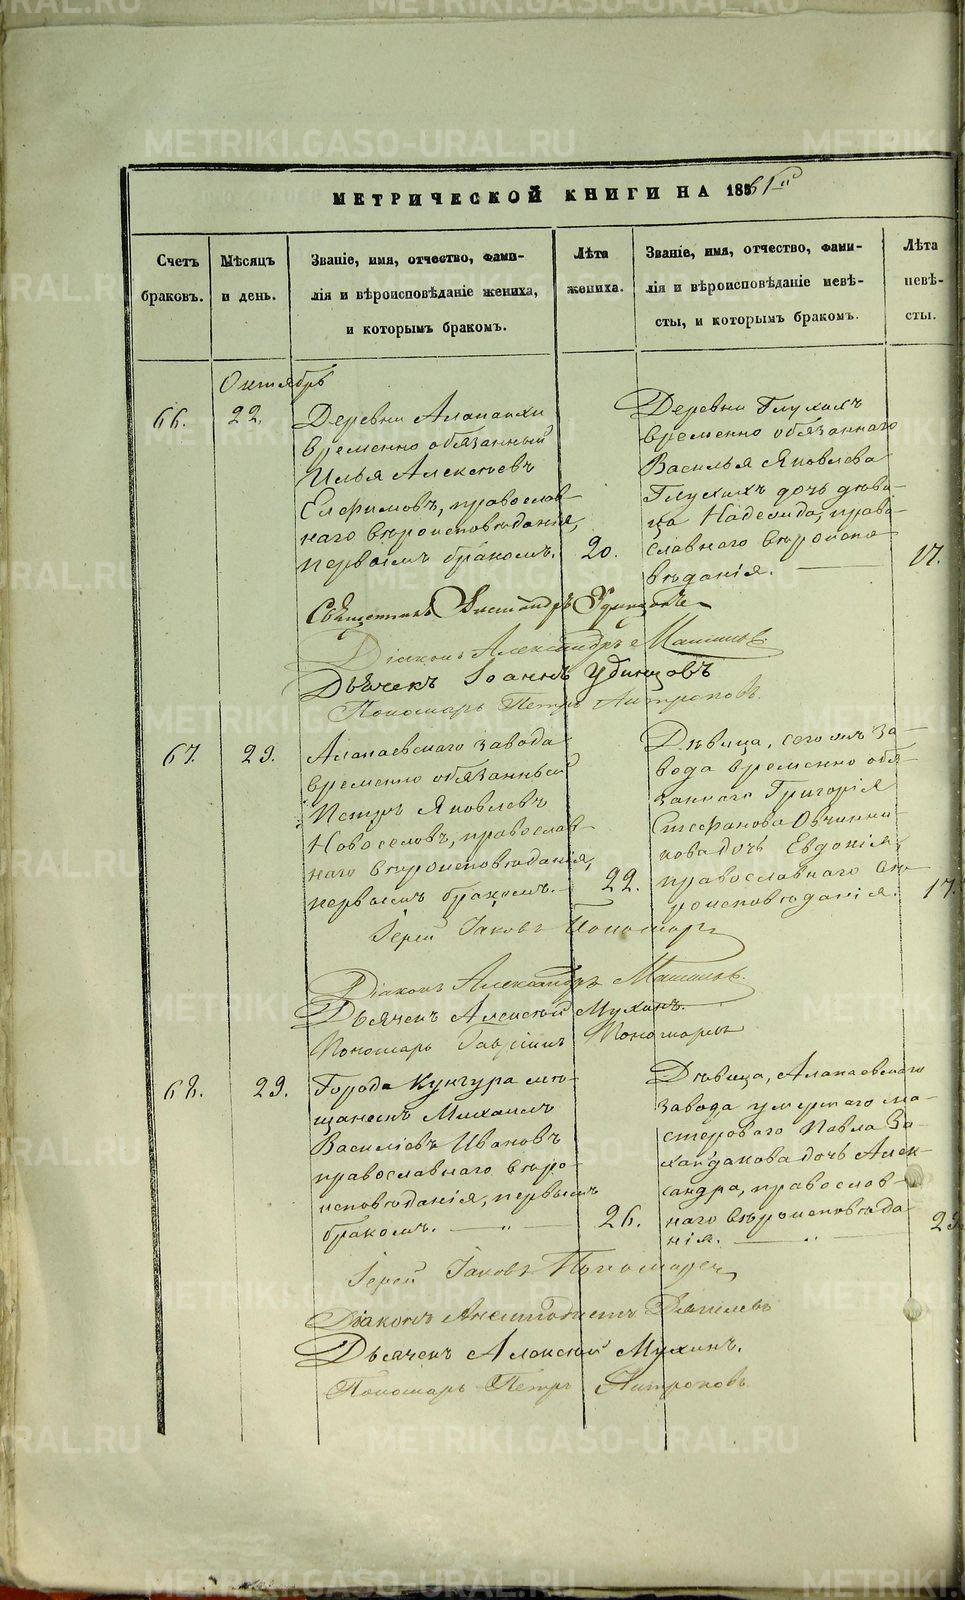 МЕТРИЧЕСКОЙ КНИГИ НА 1861й
Счетъ
браковъ.
Мѣсяцъ
и день.
Званіе, имя, отчество, фами-
лія и вѣроисповѣданіе жениха,
и которымъ бракомъ.
Лѣта
жениха.
Званіе, имя, отчество, фами-
лія и вѣроисповѣданіе невѣ-
сты, и которымъ бракомъ.
Лѣта
невѣ-
сты.
Октябрь
66.
22.
Деревни Алапаихи
временно обязанный
Илья Алексѣевъ
Елфимовъ, православ-
наго вѣроисповѣданія,
первымъ бракомъ.
20.
Деревни Глухихъ
временно обязаннаго
Василья Яковлева
Глухихъ дочь дѣви-
ца Надежда, право-
славнаго вѣроиспо-
вѣданія.
17.
Священникъ Удинцовъ
Діаконъ Александръ Машановъ
Дьячекъ Іоаннъ Удинцовъ
Пономарь Петръ Антроповъ.
67.
29.
Алапаевскаго завода
временно обязанный
Петръ Яковлевъ
Новоселовъ, православ-
наго вѣроисповѣданія,
первымъ бракомъ.
22.
Дѣвица, сего жъ за-
вода временно обя-
заннаго Григорія
Стефанова Овчинни
кова дочь Евдокія,
православнаго вѣ-
роисповѣданія.
17.
Іерей Іаковъ Пономаревъ
Діаконъ Александръ Машановъ.
Дьячекъ Алексѣй Мухинъ.
Пономарь Гавріилъ Пономаревъ
68.
29.
Города Кунгура мѣ-
щанинъ Михаилъ
Василіевъ Ивановъ
православнаго вѣро-
исповѣданія, первымъ
бракомъ. — „ —
26.
Дѣвица, Алапаевскаго
завода умершаго ма-
стероваго Павла За-
харовыхъ дочь Алек-
сандра, православ-
наго вѣроисповѣда
нія. — „ —
23.
Іерей Іаковъ Пономаревъ
Діаконъ
Дьячекъ Алексѣй Мухинъ.
Пономарь Петръ Антроповъ.
METRIKI.GASO-URAL.RU